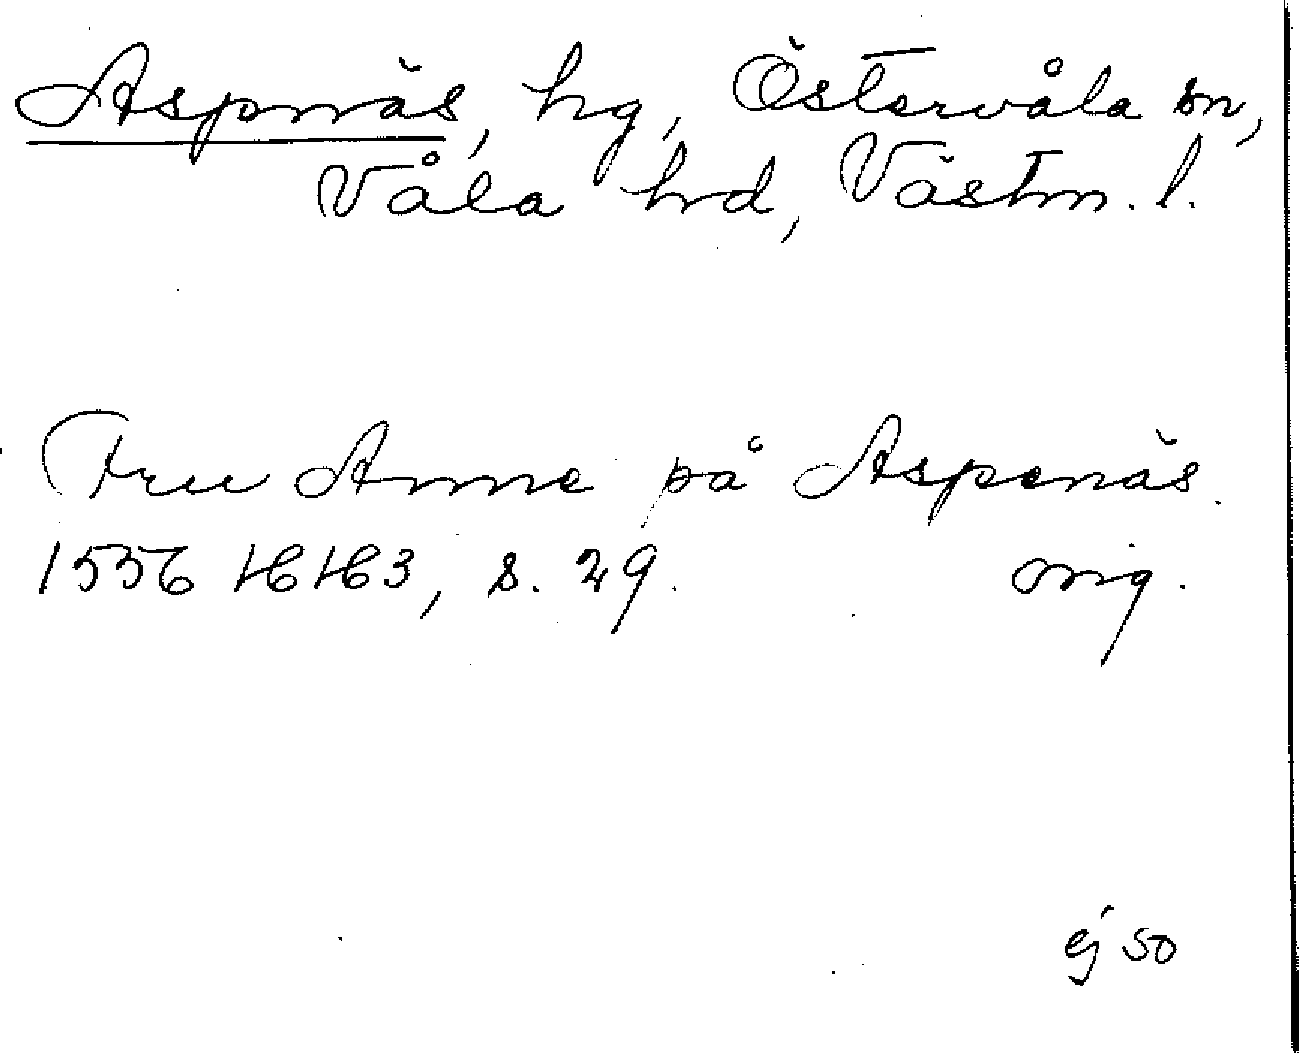 Aspnäs, hg, Östervåla sn,
Våla hrd, Västm. l.
Fru Anne på Aspenäs.
1556 HH3, s. 29. orig.
ej so